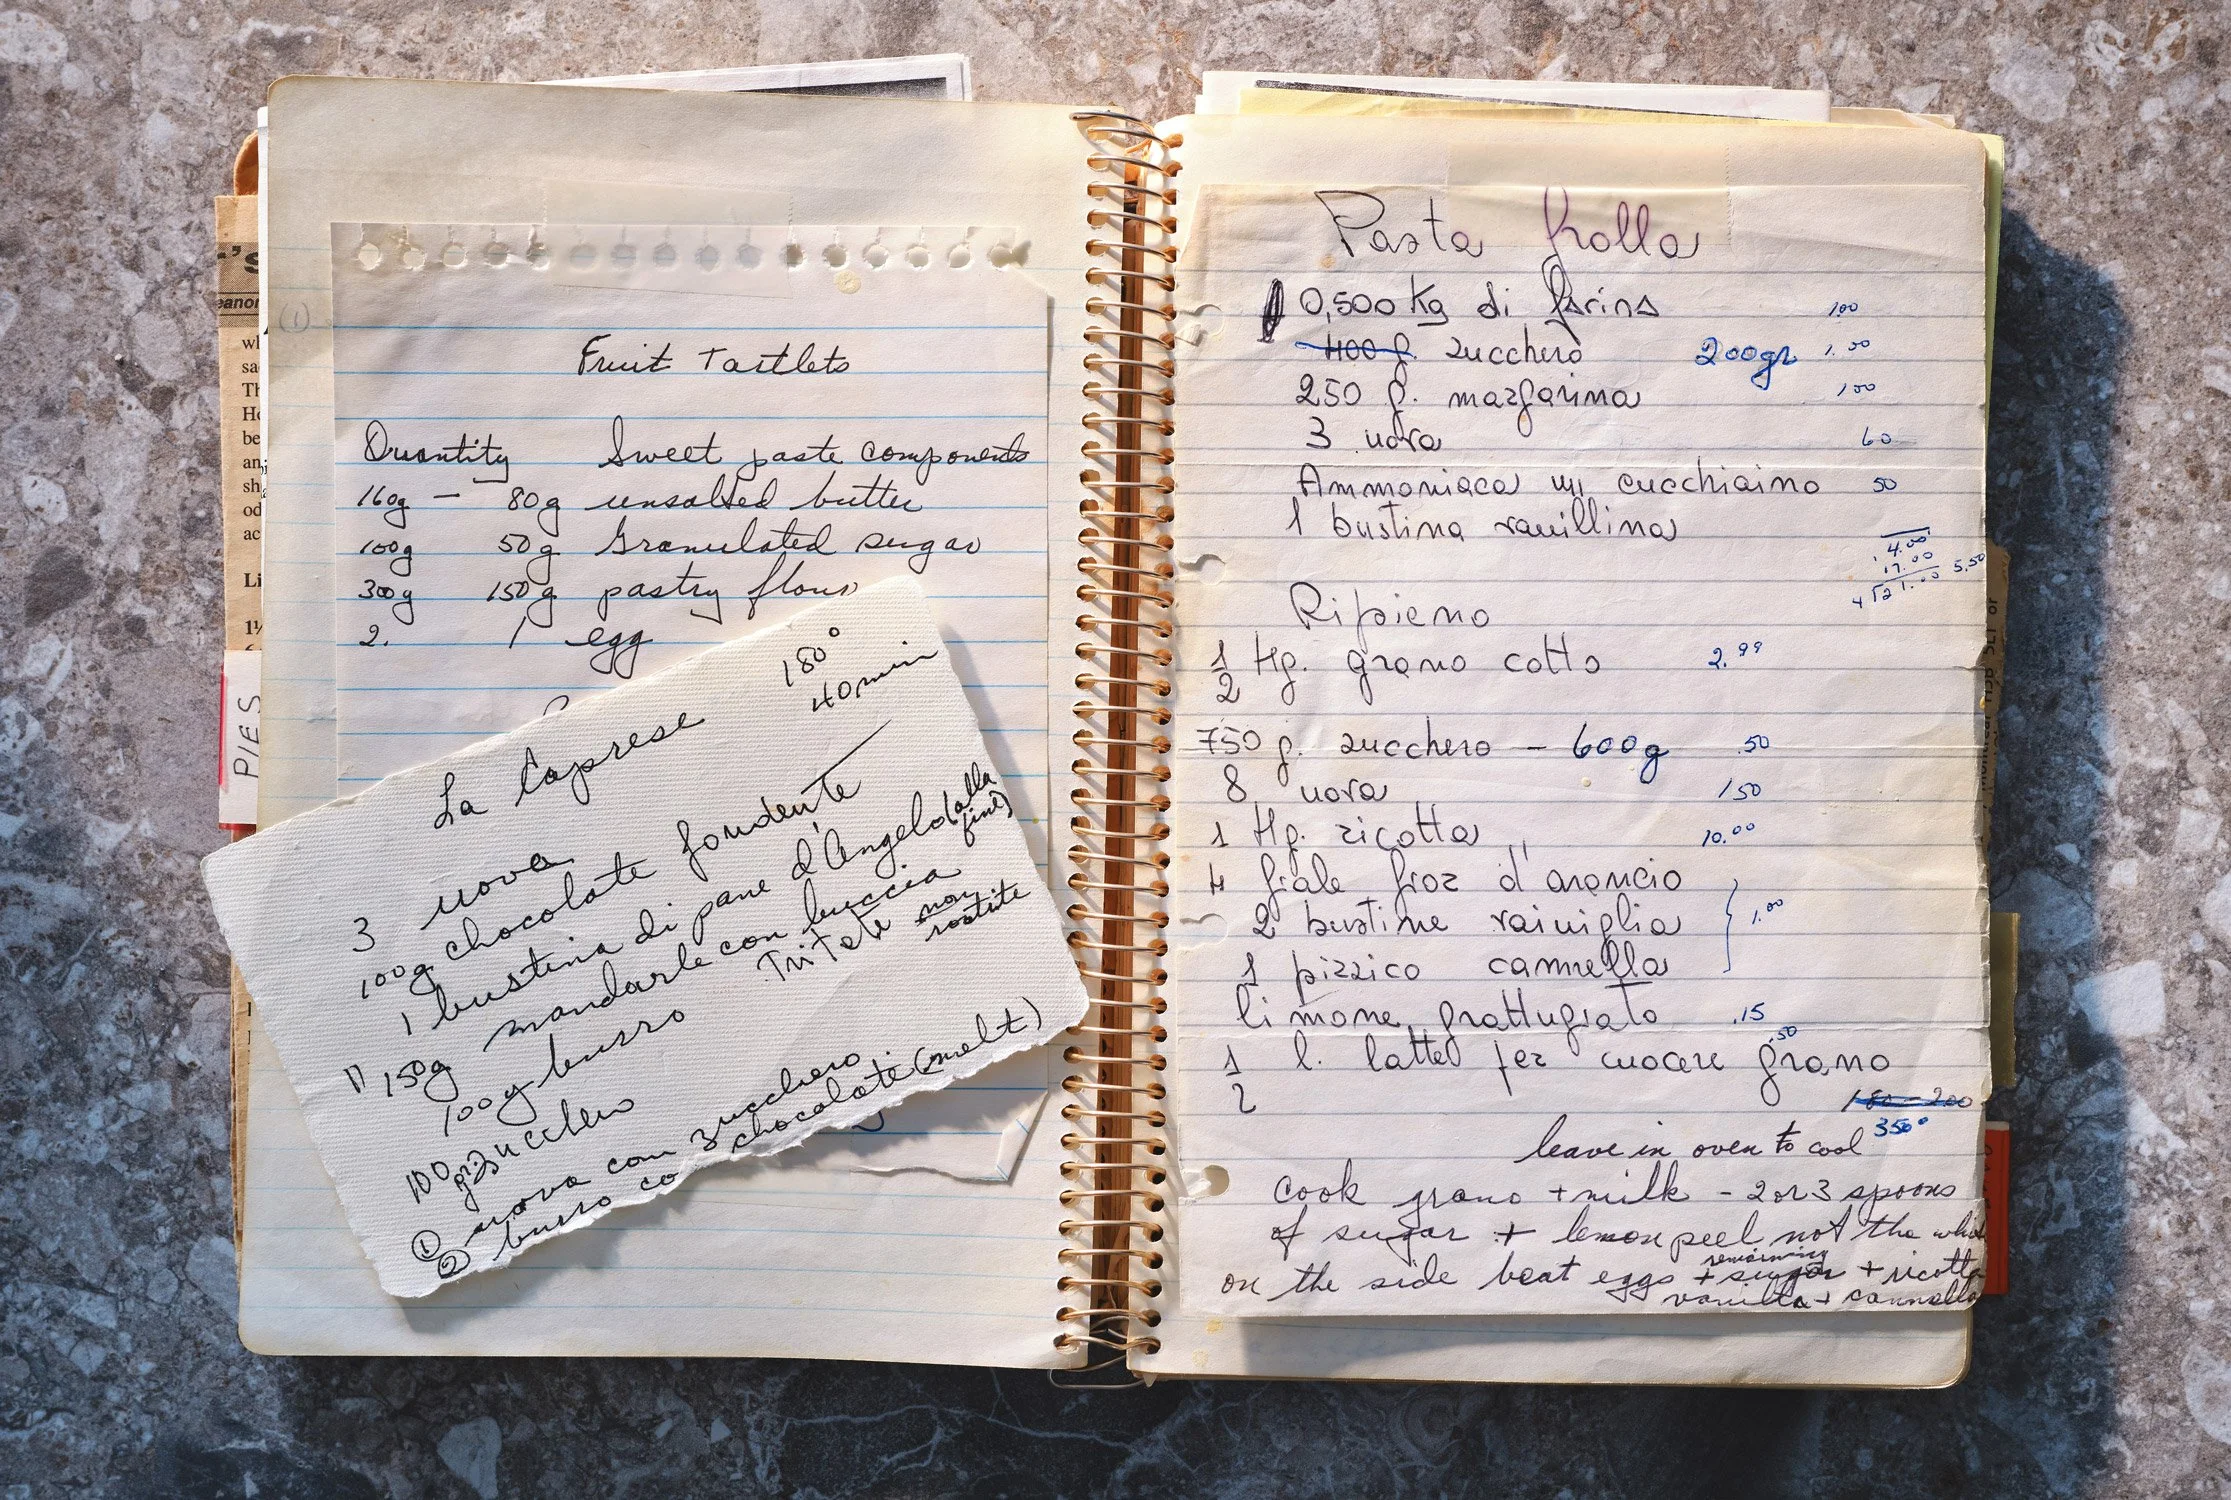 Fruit Tartlets
Quantity Sweet paste components
160g - 80g unsalted butter
100g 50g Granulated sugar
300g 150g pastry flour
2. 1 egg
180°
40 min
La Caprese
3 uova
100g chocolate fondente
1 bustina di pane d'Angelo (alla fine)
11 150g mandarle con buccia
Tritate non rostite
100g burro
100 gr zucchero
① uova con zucchero
② burro co chocolate (melt)
PIES
(1)
r's
eanor
wl
sa
Th
Ho
be
an
sh
od
ac
Li
1½
Pasta frolla
0,500 Kg di farina 1.00
400 g. zucchero 200gr 1.00
250 g. margarina 100
3 uova 60
Ammoniaca un cucchiaino 50
1 bustina vanillina
4.00
17.00
4 21.00 5.50
Ripieno
1/2 Hg. grano cotto 2.99
750 g. zucchero - 600g .50
8 uova 150
1 Hg. ricotta 10.00
4 fiale fior d'arancio
2 bustine vainiglia 1.00
1 pizzico cannella
limone grattugiato .15
1/2 l. latte per cuocere grano .50
180-200
350°
leave in oven to cool
cook grano + milk - 2 or 3 spoons
of sugar + lemon peel not the whi
on the side beat eggs + remaining sugar + ricotta
vanilla + cannella